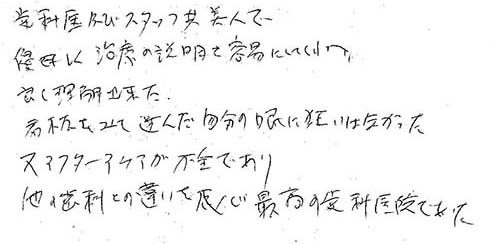 歯科医及びスタッフ共美人で
優しく治療の説明を容易にしてくれ
良く理解出来た。
看板を見て選んだ自分の眼に狂いはなかった
又アフターケアが万全であり
他の歯科との違いを感じ最高の歯科医院であった